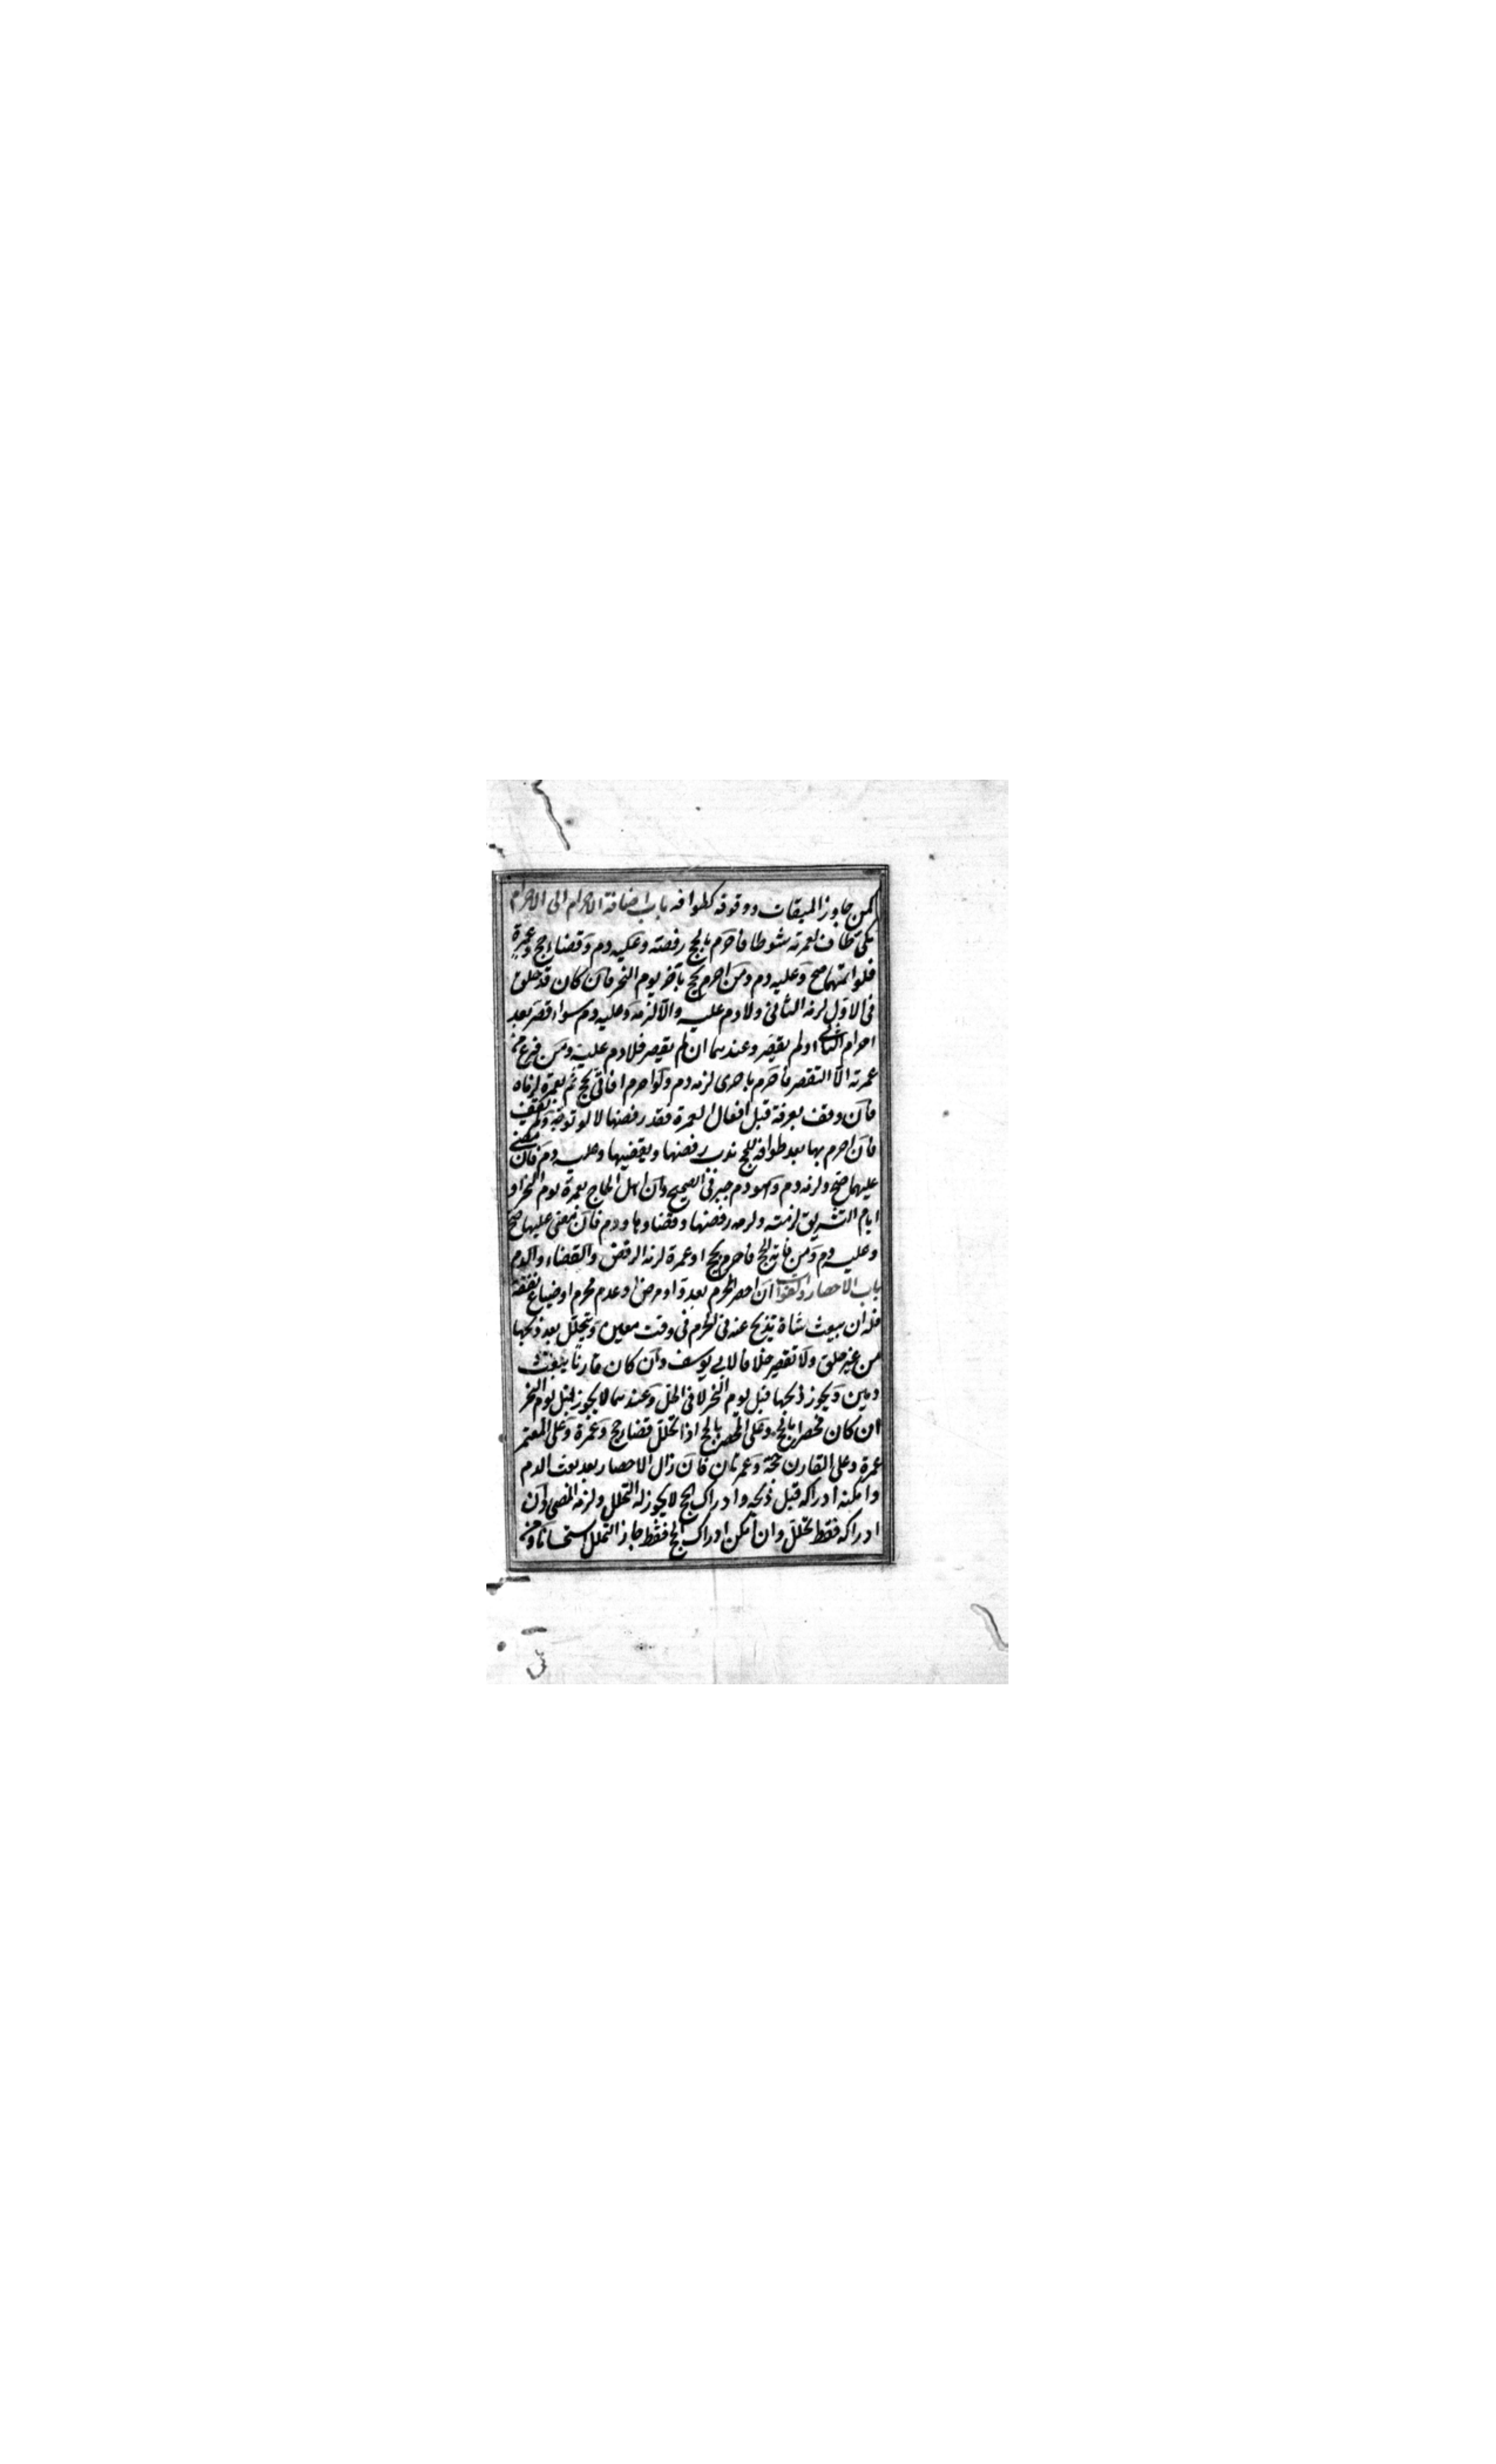 كمن جاوز الميقات ووقوفه كطوافه باب اضافة الاحرام الى الاحرام
مكى طاف لعمرته شوطا فاحرم بالحج رفضه وعليه دم وقضاء حج وعمرة
فلو اتمهما صح وعليه دم ومن احرم بحج بآخر يوم النحر فان كان قد حلق
فى الاول لزمه الثانى ولا دم عليه والا لزمه وعليه دم سواء قصر بعد
احرام الثانى او لم يقصر وعندهما ان لم يقصر فلا دم عليه ومن فرغ من
عمرته الا التقصير فاحرم باخرى لزمه دم ولو احرم افاقى بحج ثم بعمرة لزماه
فان وقف بعرفة قبل افعال العمرة فقد رفضها لا لو توجه ولم يقف
فان احرم بها بعد طوافه للحج ندب رفضها ويقضيها وعليه دم فان مضى
عليهما صح ولزمه دم وهو دم جبر فى الصحيح وان اهل الحاج بعمرة يوم النحر او
ايام التشريق لزمته ولزمه رفضها وقضاوها ودم فان مضى عليها صح
وعليه دم ومن فاته الحج فاحرم بحج او عمرة لزمه الرفض والقضاء والدم
باب الاحصار والفوات ان احصر المحرم بعدو او مرض او عدم محرم او ضياع نفقة
فله ان يبعث شاة تذبح عنه فى الحرم فى وقت معين ويتحلل بعد ذبحها
من غير حلق ولا تقصير خلافا لابى يوسف وان كان قارنا يبعث
دمين ويجوز ذبحها قبل يوم النحر لا فى الحل وعندهما لا يجوز قبل يوم النحر
ان كان محصرا بالحج وعلى المحصر بالحج اذا تحلل قضاء حج وعمرة وعلى المعتمر
عمرة وعلى القارن حجة وعمرتان فان زال الاحصار بعد بعث الدم
وامكنه ادراكه قبل ذبحه وادراك الحج لا يجوز له التحلل ولزمه المضى وان
ادراكه فقط تحلل وان امكن ادراك الحج فقط جاز التحلل استحسانا ومن